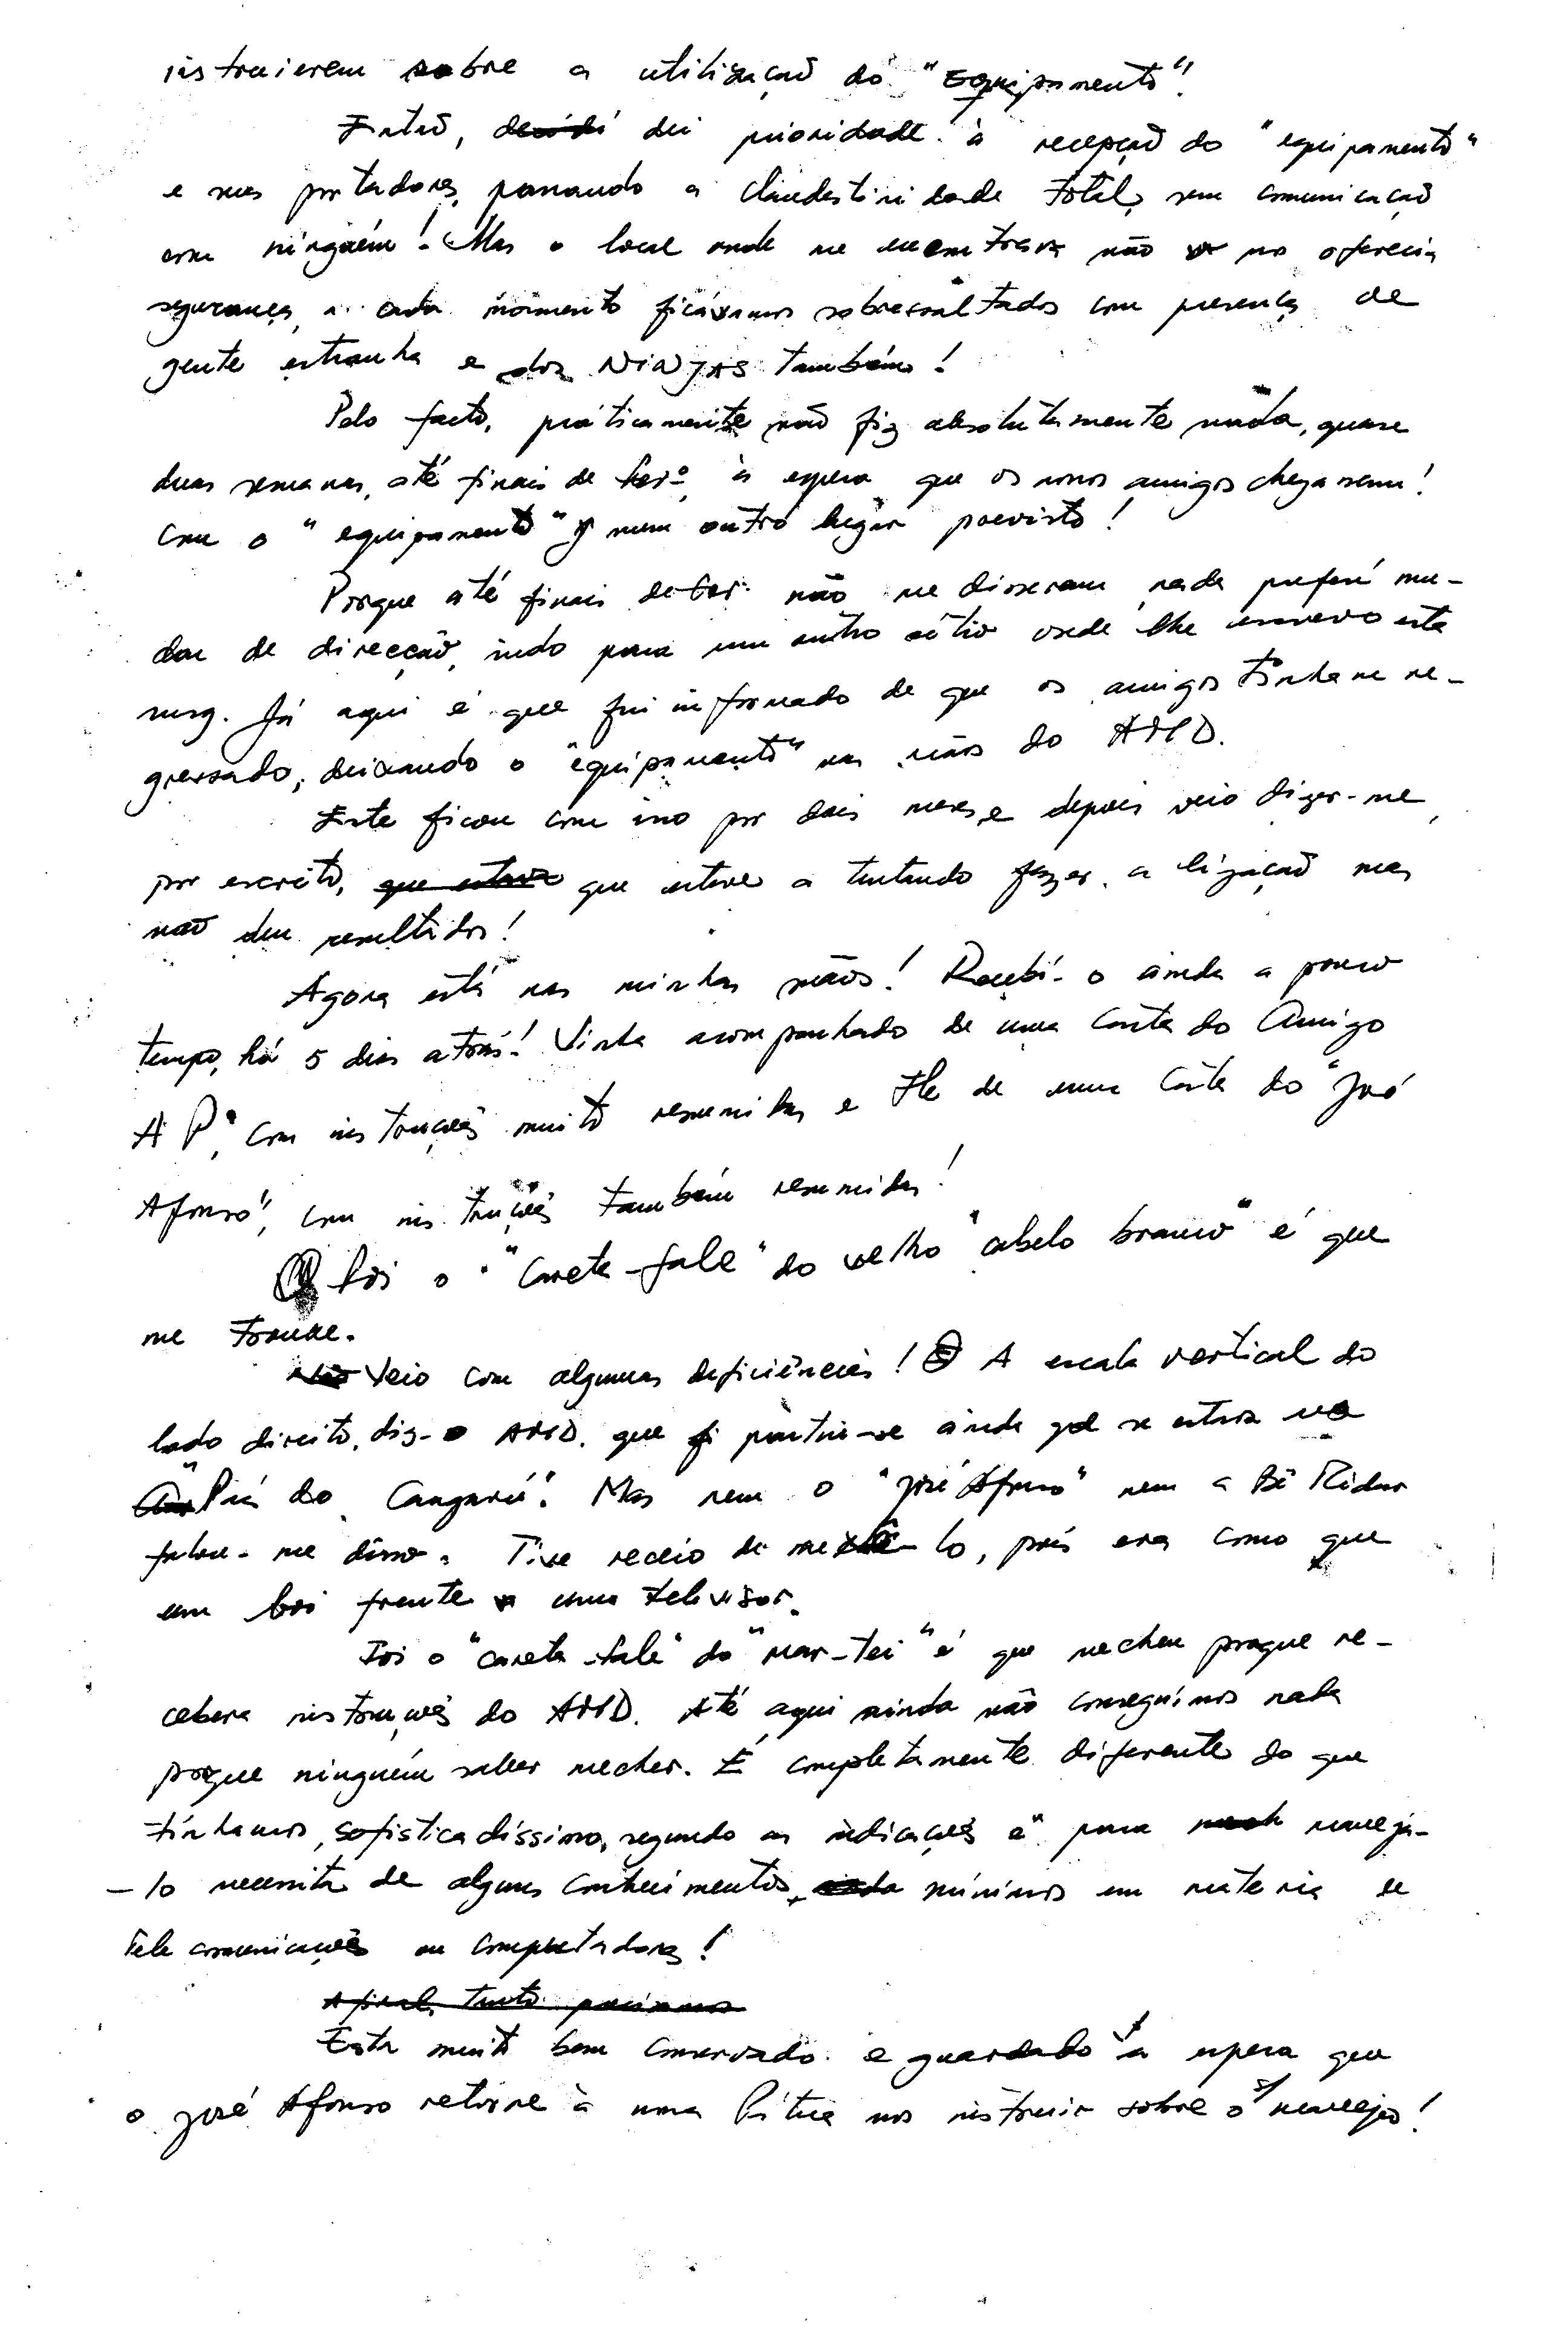 instruierem sobre a utilização do "Equipamento".
Então, decidi dei prioridade à recepção do "equipamento"
e seus portadores, passando a clandestinidade total, sem comunicação
com ninguém! Mas o local onde me encontrava não nos oferecia
segurança, a cada momento ficávamos sobressaltados com presença de
gente estranha e dos NINJAS também!
Pelo facto, práticamente não fiz absolutamente nada, quase
duas semanas, até finais de Fevº, à espera que os nossos amigos chegassem!
com o "equipamento" num outro lugar previsto!
Porque até finais de Fev. não me disseram nada preferí mu-
dar de direcção, indo para um outro sítio onde lhe escrevo esta
msg. Já aqui é que fui informado de que os amigos tinham re-
gressado, deixando o "equipamento" nas mãos do AMD.
Este ficou com isso por dois meses e depois veio dizer-me,
por escrito, que estava que esteve a tentando fazer a ligação mas
não deu resultados!
Agora está nas minhas mãos! Recebí-o ainda a pouco
tempo, há 5 dias atrás! Vinha acompanhado de uma Carta do Amigo
A P, com instruções muito resumidas e de uma Carta do "José
Afonso", com instruções também resumidas!
Foi o "Careta-fale" do velho "cabelo branco" é que
me trouxe.
Não Veio com algumas deficiências! A escala vertical do
lado direito, diz-o AMD. que partiu-se ainda qd se estava no
"País do Canguru". Mas nem o "José Afonso" nem a Bi Ridur
falou-me disso. Tive receio de mexê-lo, pois era como que
um boi frente a uma televisor.
Foi o "careta-fale" do "Mar-tei" é que mecheu porque re-
cebera instruções do AMD. Até aqui ainda não conseguimos nada
porque ninguém saber mecher. É completamente diferente do que
tínhamos, sofisticadíssimo, segundo as indicações e para maneja-
-lo necessita de alguns conhecimentos mínimos em materia de
Telecomunicações ou computadores!
Afinal, tanto
Esta muito bem conservado e guardado à espera que
o José Afonso retorne à uma Pítua nos instruir sobre o s/ manejo!